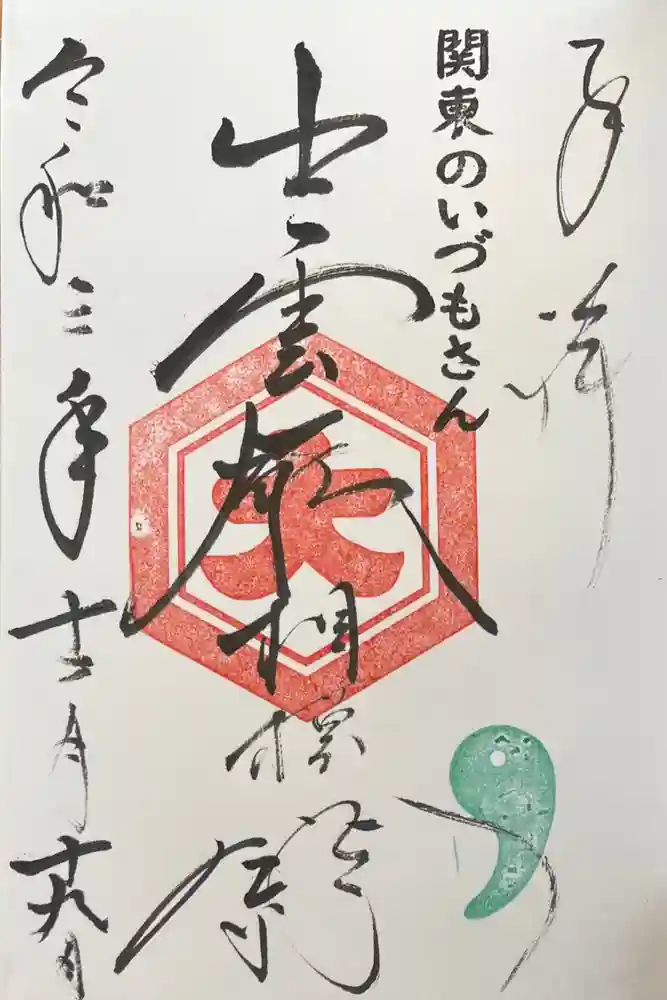 奉拝
関東のいづもさん
出雲
相模
大
令和三年十一月十九日